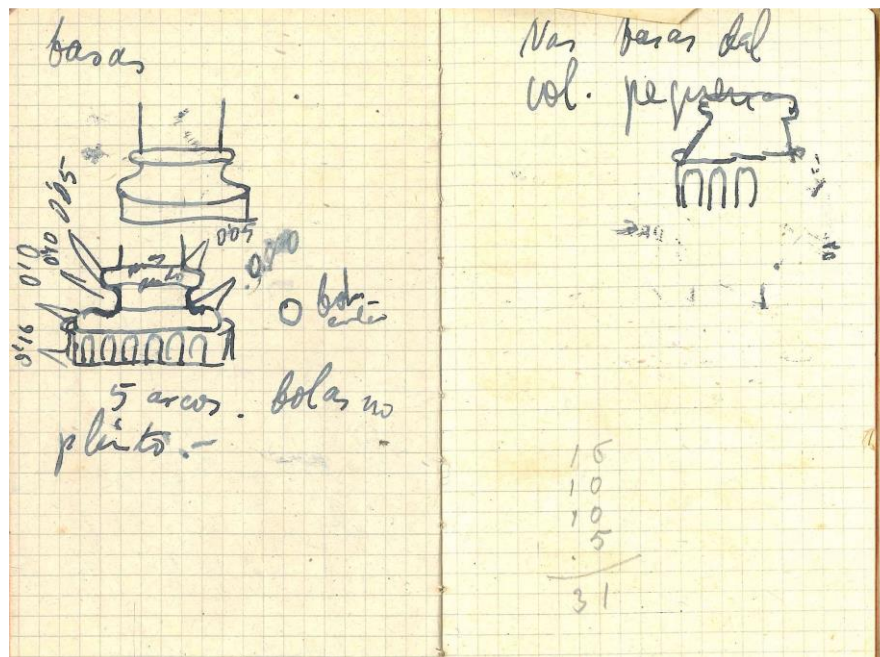 basas
0'05
0'10
0'10
0'16
0'05
5 arcos. bolas no
plinto.-
Nas basas das
col. pequenas
16
10
10
.5
31